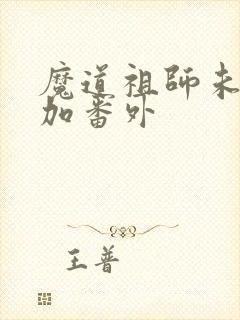 魔道祖师未
加番外
王普